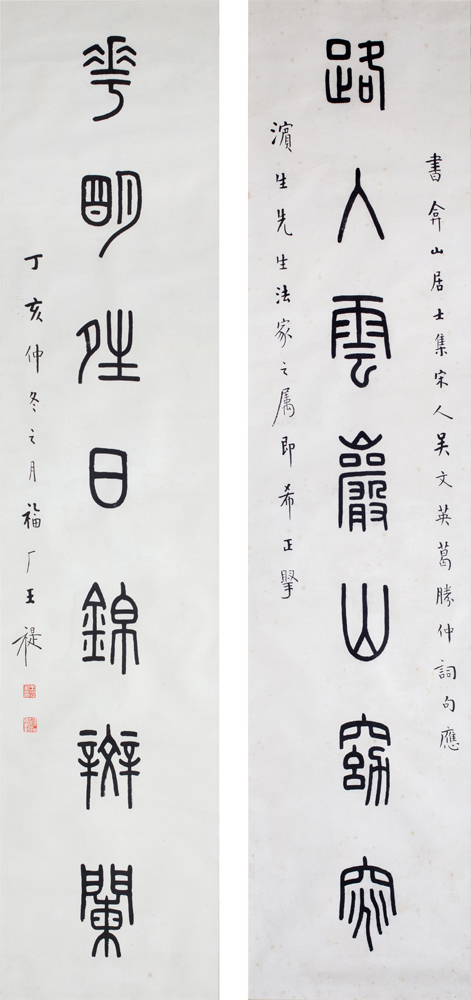 書弇山居士集宋人吳文英葛勝仲詞句應
路入雲巖山窈窕
濱生先生法家之属即希正擥
華明佳日錦辬闌
丁亥仲冬之月福厂王禔